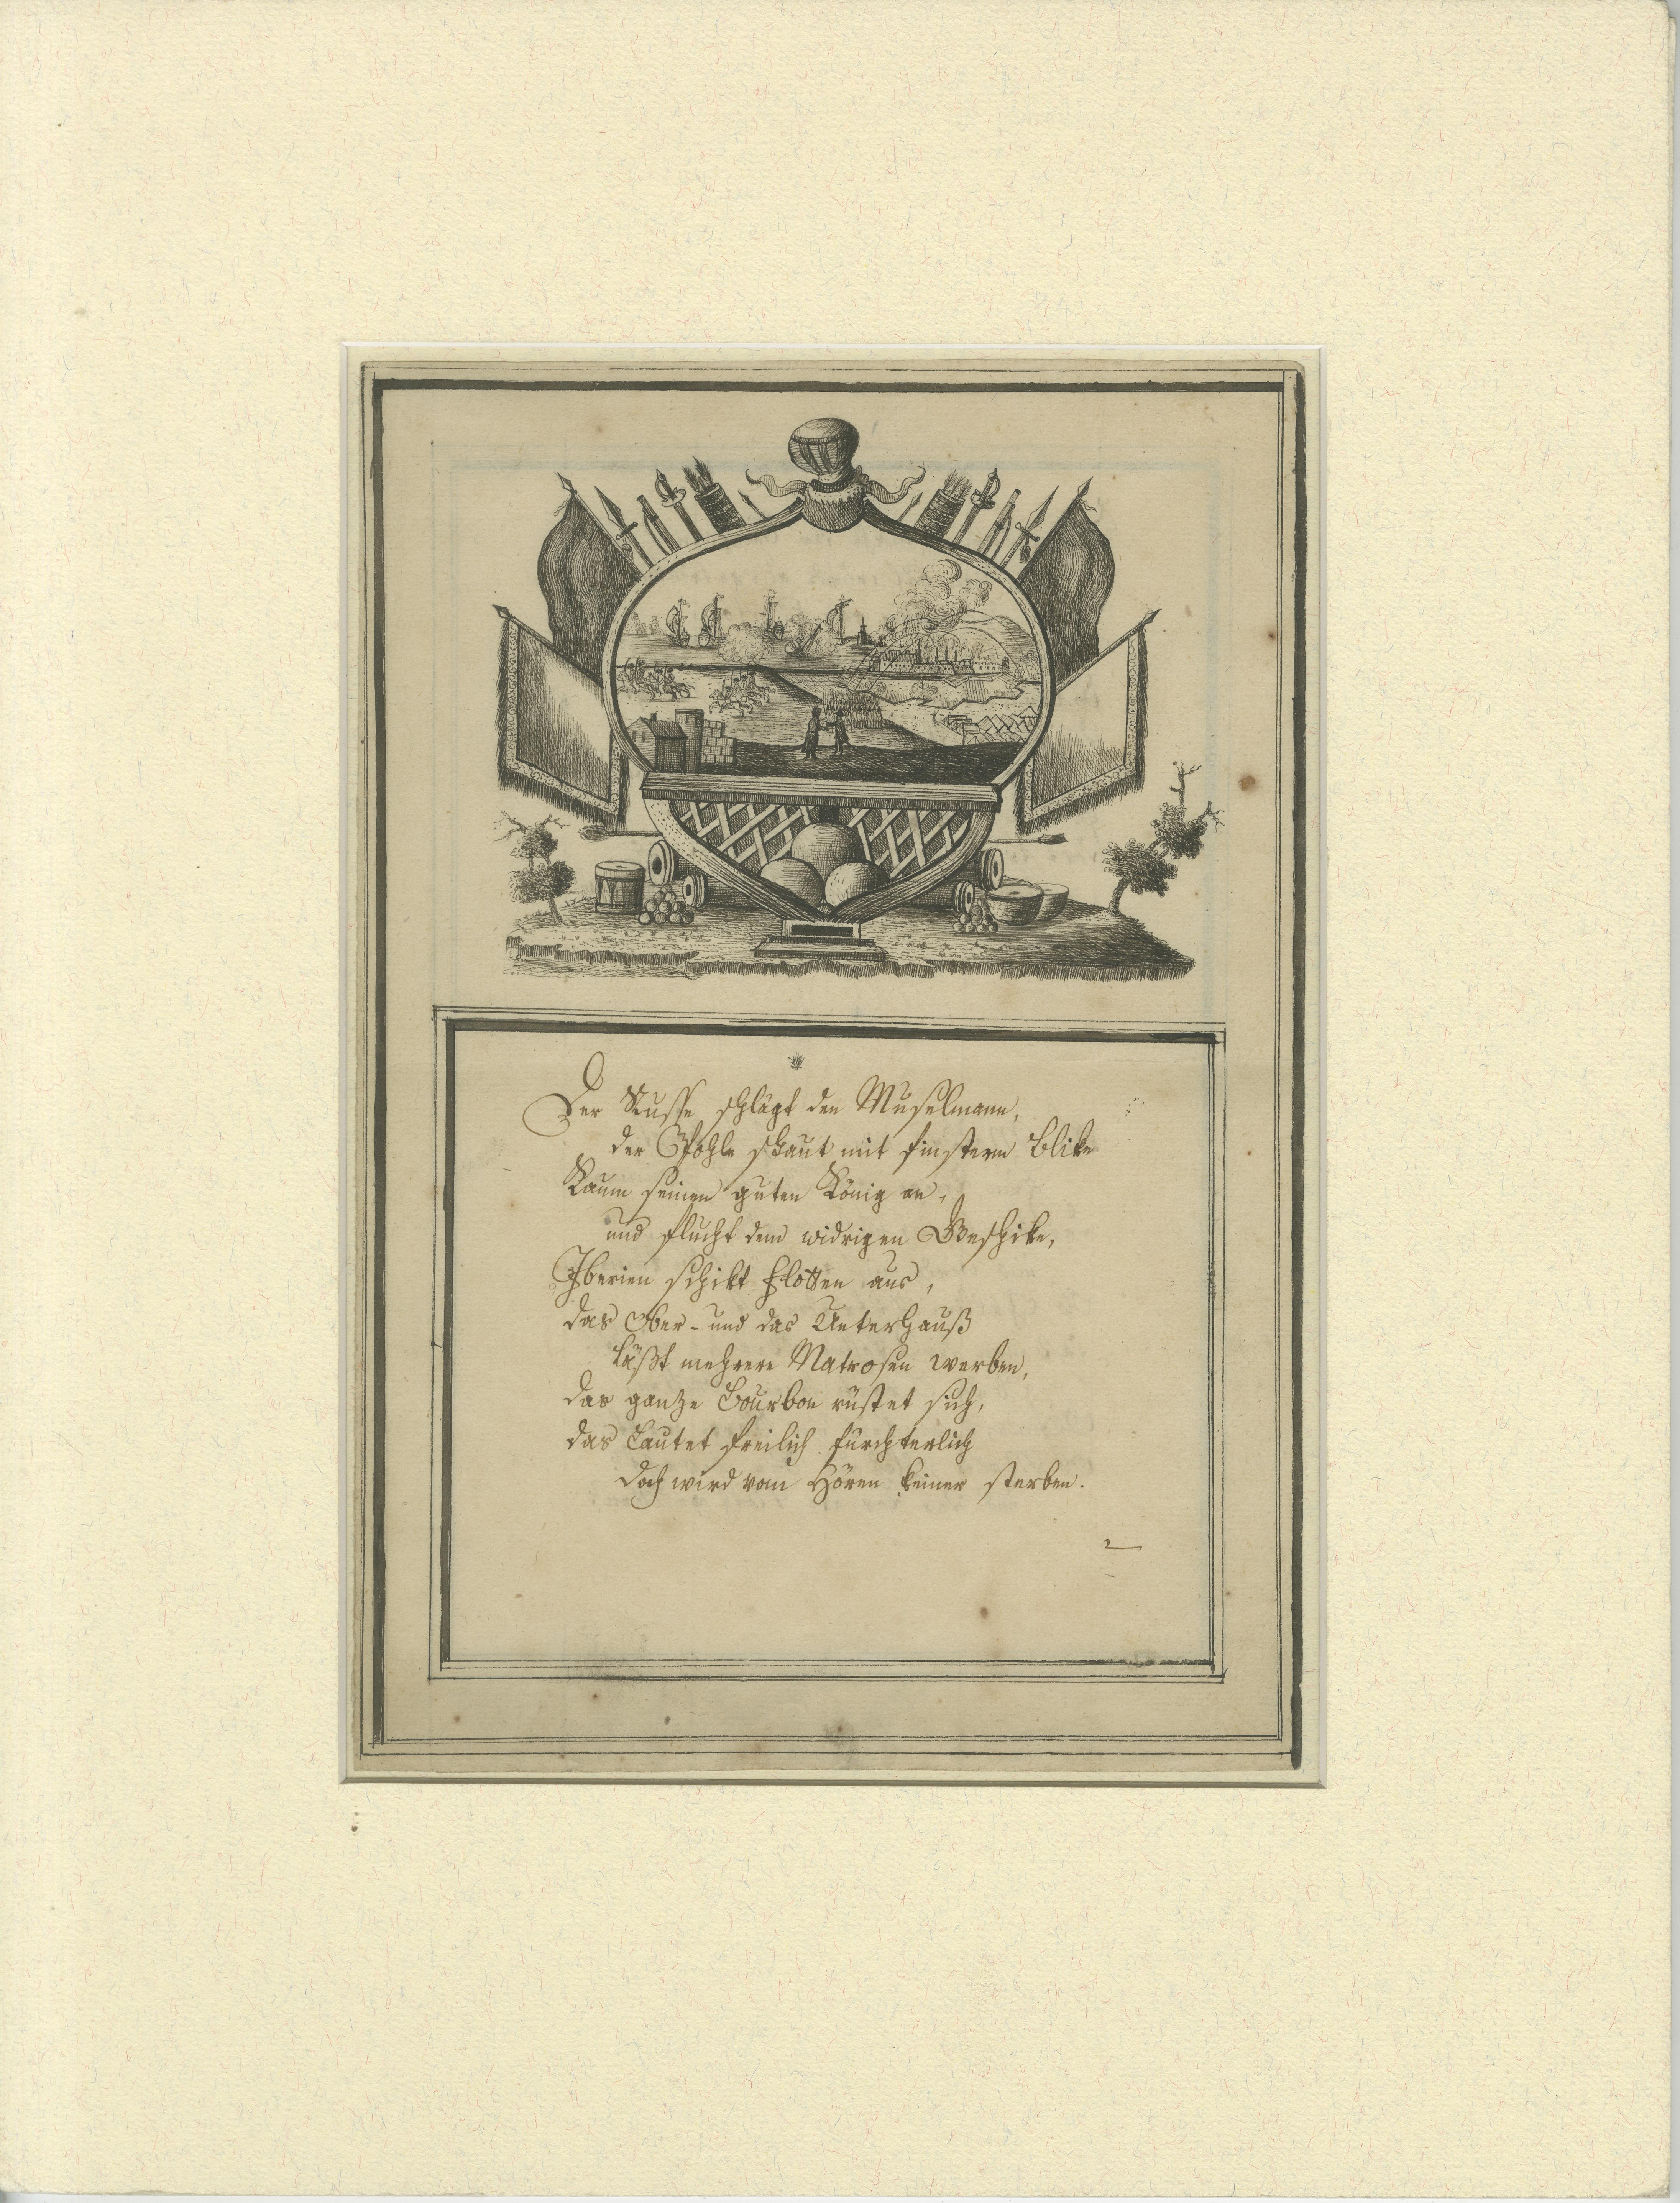 Der Russe schlägt den Muselmann,
der Pohle schaut mit finsterm Blike
Kaum seinen guten König an,
und flucht dem widrigen Geschike,
Iberien schikt Flotten aus,
das Ober- und das Unterhauß
läßt mehrere Matrosen werben,
das ganze Bourbon rüstet sich,
das lautet freilich fürchterlich
doch wird vom Hören keiner sterben.
2